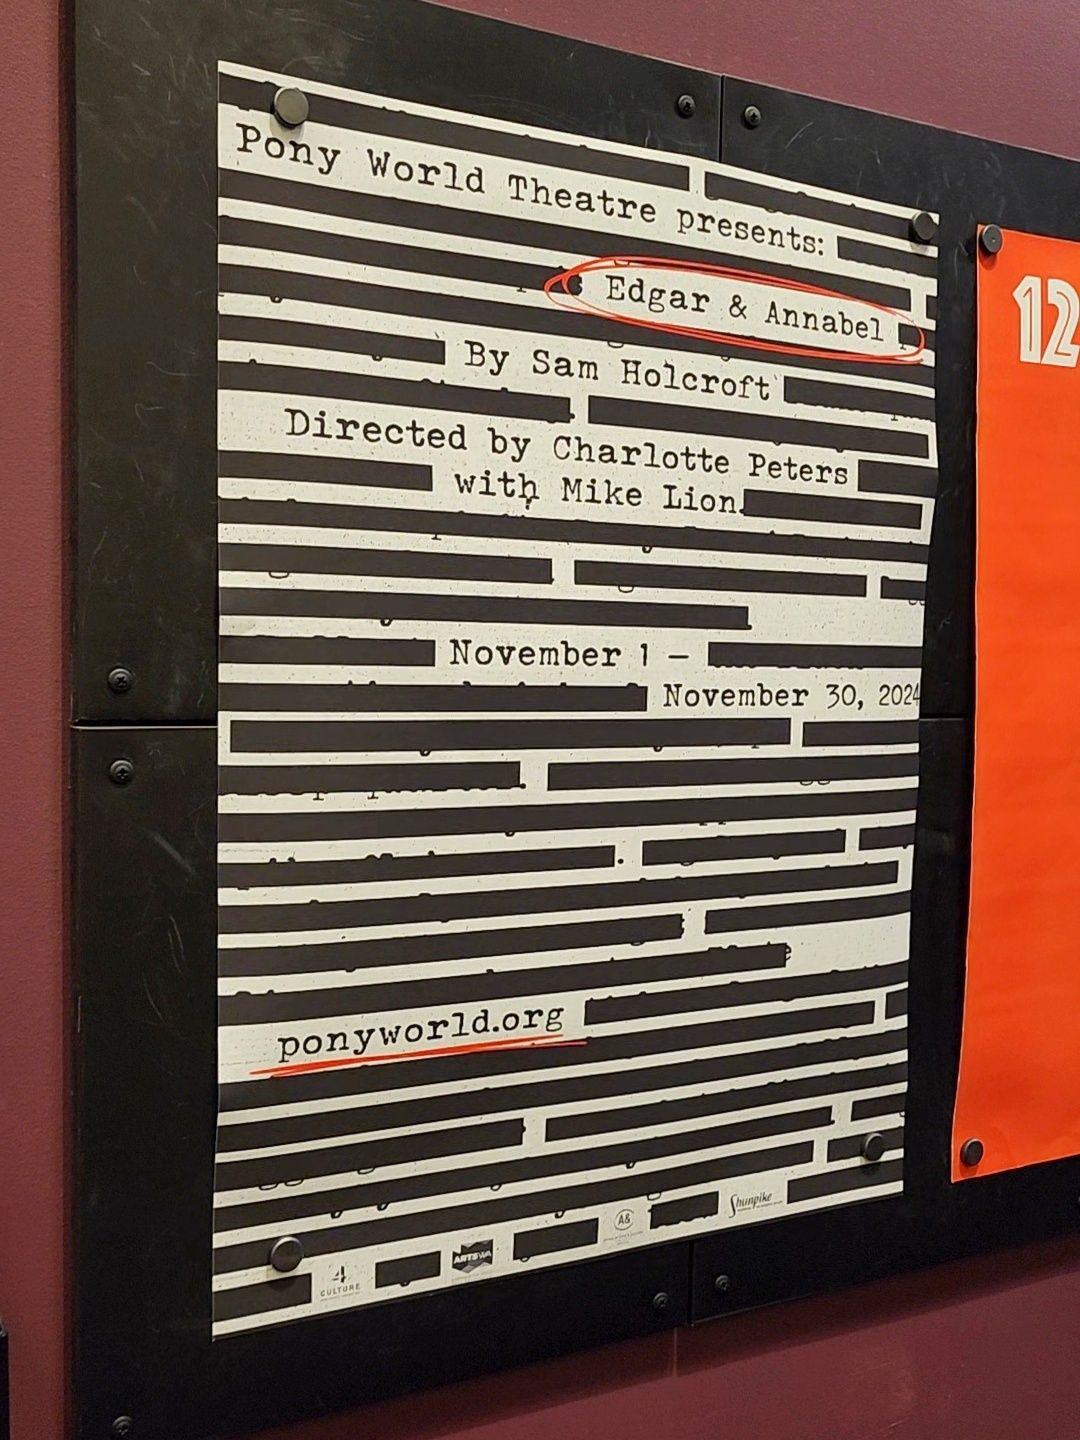 Pony World Theatre presents:
Edgar & Annabel
By Sam Holcroft
Directed by Charlotte Peters
with Mike Lion.
November 1 –
November 30, 2024
ponyworld.org
4
CULTURE
ARTSWA
A&C
Shunpike
12